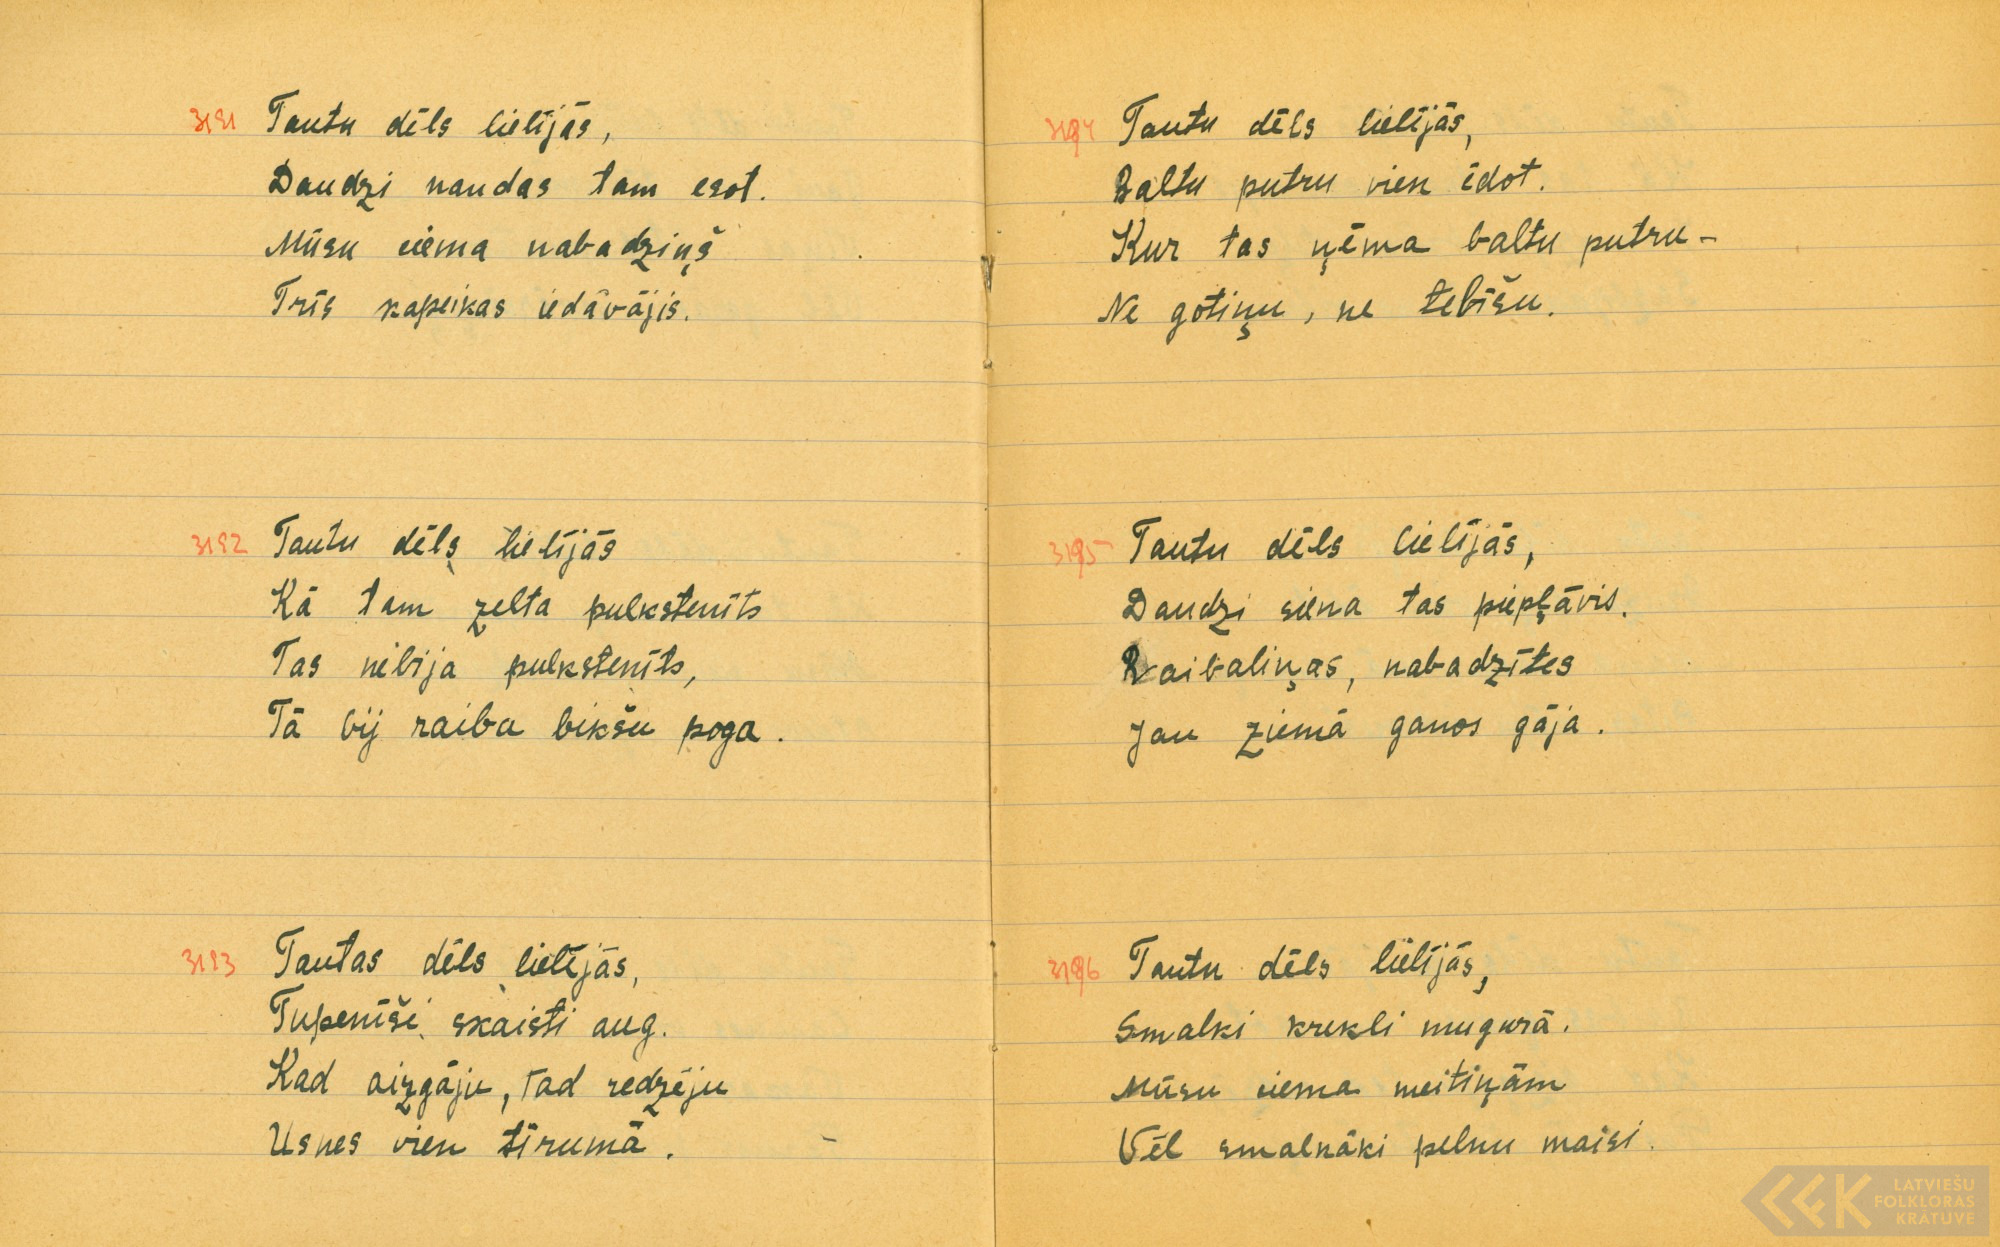 3191 Tautu dēls lielījās,
Daudzi naudas tam esot.
Mūsu ciema nabadziņš
Trīs kapeikas iedāvājis.
3192 Tautu dēls lielījās
Kā tam zelta pulkstenīts
Tas nebija pulkstenīts,
Tā bij raiba bikšu poga.
3193 Tautas dēls lielījās,
Tupenīši skaisti aug.
Kad aizgāju, tad redzēju
Usnes vien tīrumā.
3194 Tautu dēls lielījās,
Baltu putru vien ēdot.
Kur tas ņēma baltu putru –
Ne gotiņu, ne telīšu.
3195 Tautu dēls lielījās,
Daudzi siena tas piepļāvis.
Raibaliņas, nabadzītes
Jau ziemā ganos gāja.
3196 Tautu dēls lielījās,
Smalki krekli mugurā.
Mūsu ciema meitiņām
Vēl smalkāki pelnu maisi.
LATVIEŠU
FOLKLORAS
KRĀTUVE